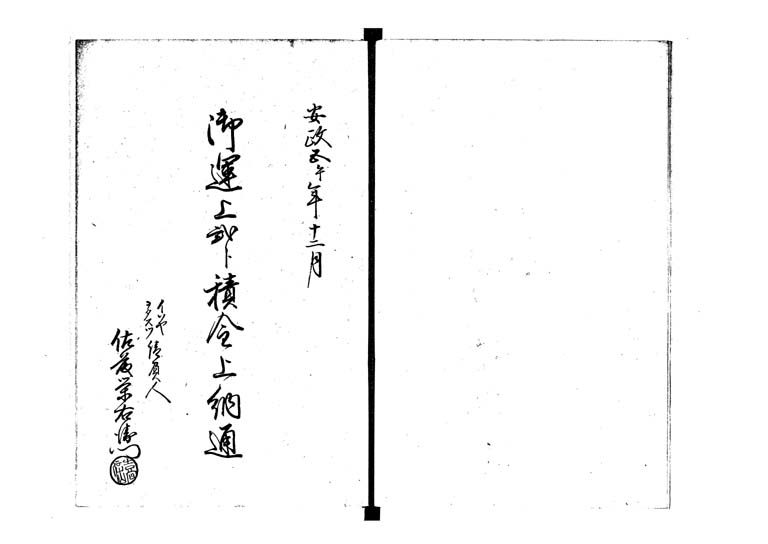 安政五午年十二月
御運上並ニ積金上納通
イソヤ
ヲタスツ請負人
佐藤栄右衛門